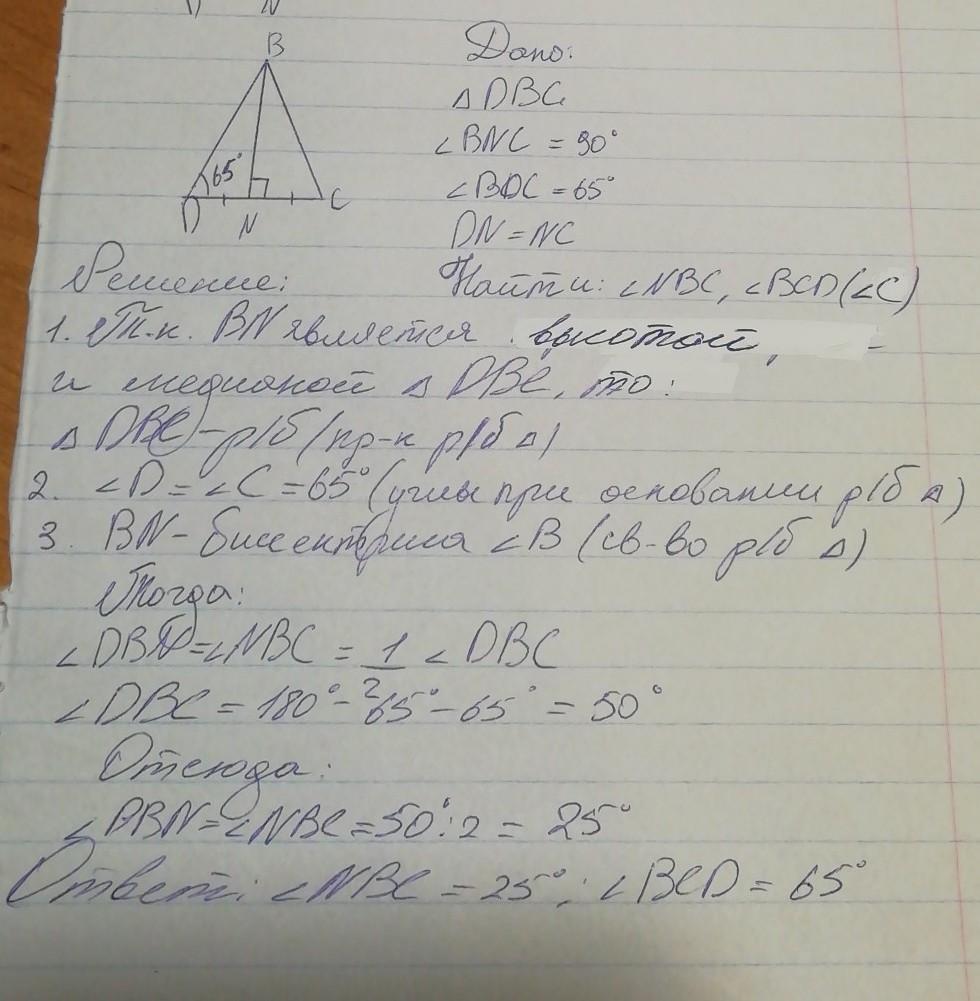 B
65°
D N C
Дано:
△ DBC
∠BNC = 90°
∠BDC = 65°
DN = NC
Решение:
Найти: ∠NBC, ∠BCD(∠C)
1. Т.к. BN является высотой,
и медианой △ DBC, то:
△ DBC - р/б (пр-к р/б △)
2. ∠D = ∠C = 65° (углы при основании р/б △)
3. BN - биссектриса ∠B (св-во р/б △)
Тогда:
∠DBN = ∠NBC = 1/2 ∠ DBC
∠DBC = 180° - 65° - 65° = 50°
Отсюда:
∠DBN = ∠NBC = 50° : 2 = 25°
Ответ: ∠NBC = 25°; ∠BCD = 65°